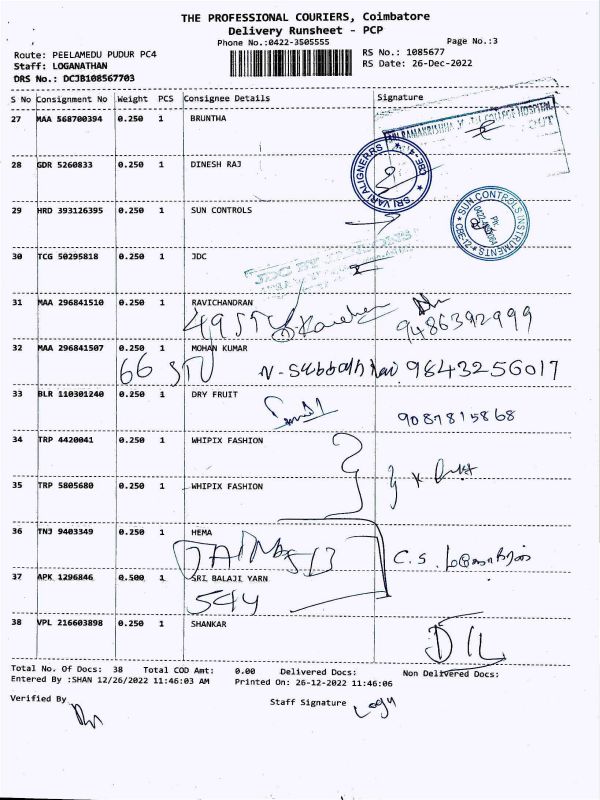 THE PROFESSIONAL COURIERS, Coimbatore
Delivery Runsheet - PCP
Phone No.:0422-3505555 Page No.:3
Route: PEELAMEDU PUDUR PC4 RS No.: 1085677
Staff: LOGANATHAN RS Date: 26-Dec-2022
DRS No.: DCJB108567703
S No Consignment No Weight PCS Consignee Details Signature
27 MAA 568700394 0.250 1 BRUNTHA
COLLEGE HOSPITAL
OUT
28 GDR 5260833 0.250 1 DINESH RAJ
SRI VARI ALIGNERRS CBE-4
29 HRD 393126395 0.250 1 SUN CONTROLS
SUN CONTROLS INSTRUMENTS
30 TCG 50295818 0.250 1 JDC
31 MAA 296841510 0.250 1 RAVICHANDRAN
9486392999
32 MAA 296841507 0.250 1 MOHAN KUMAR
66 9843256017
33 BLR 110301240 0.250 1 DRY FRUIT
9087815868
34 TRP 4420041 0.250 1 WHIPIX FASHION
35 TRP 5805680 0.250 1 WHIPIX FASHION
36 TNJ 9403349 0.250 1 HEMA
C.S.
37 APK 1296846 0.500 1 SRI BALAJI YARN
544
38 VPL 216603898 0.250 1 SHANKAR
DIL
Total No. Of Docs: 38 Total COD Amt: 0.00 Delivered Docs: Non Delivered Docs:
Entered By :SHAN 12/26/2022 11:46:03 AM Printed On: 26-12-2022 11:46:06
Verified By Staff Signature Logu